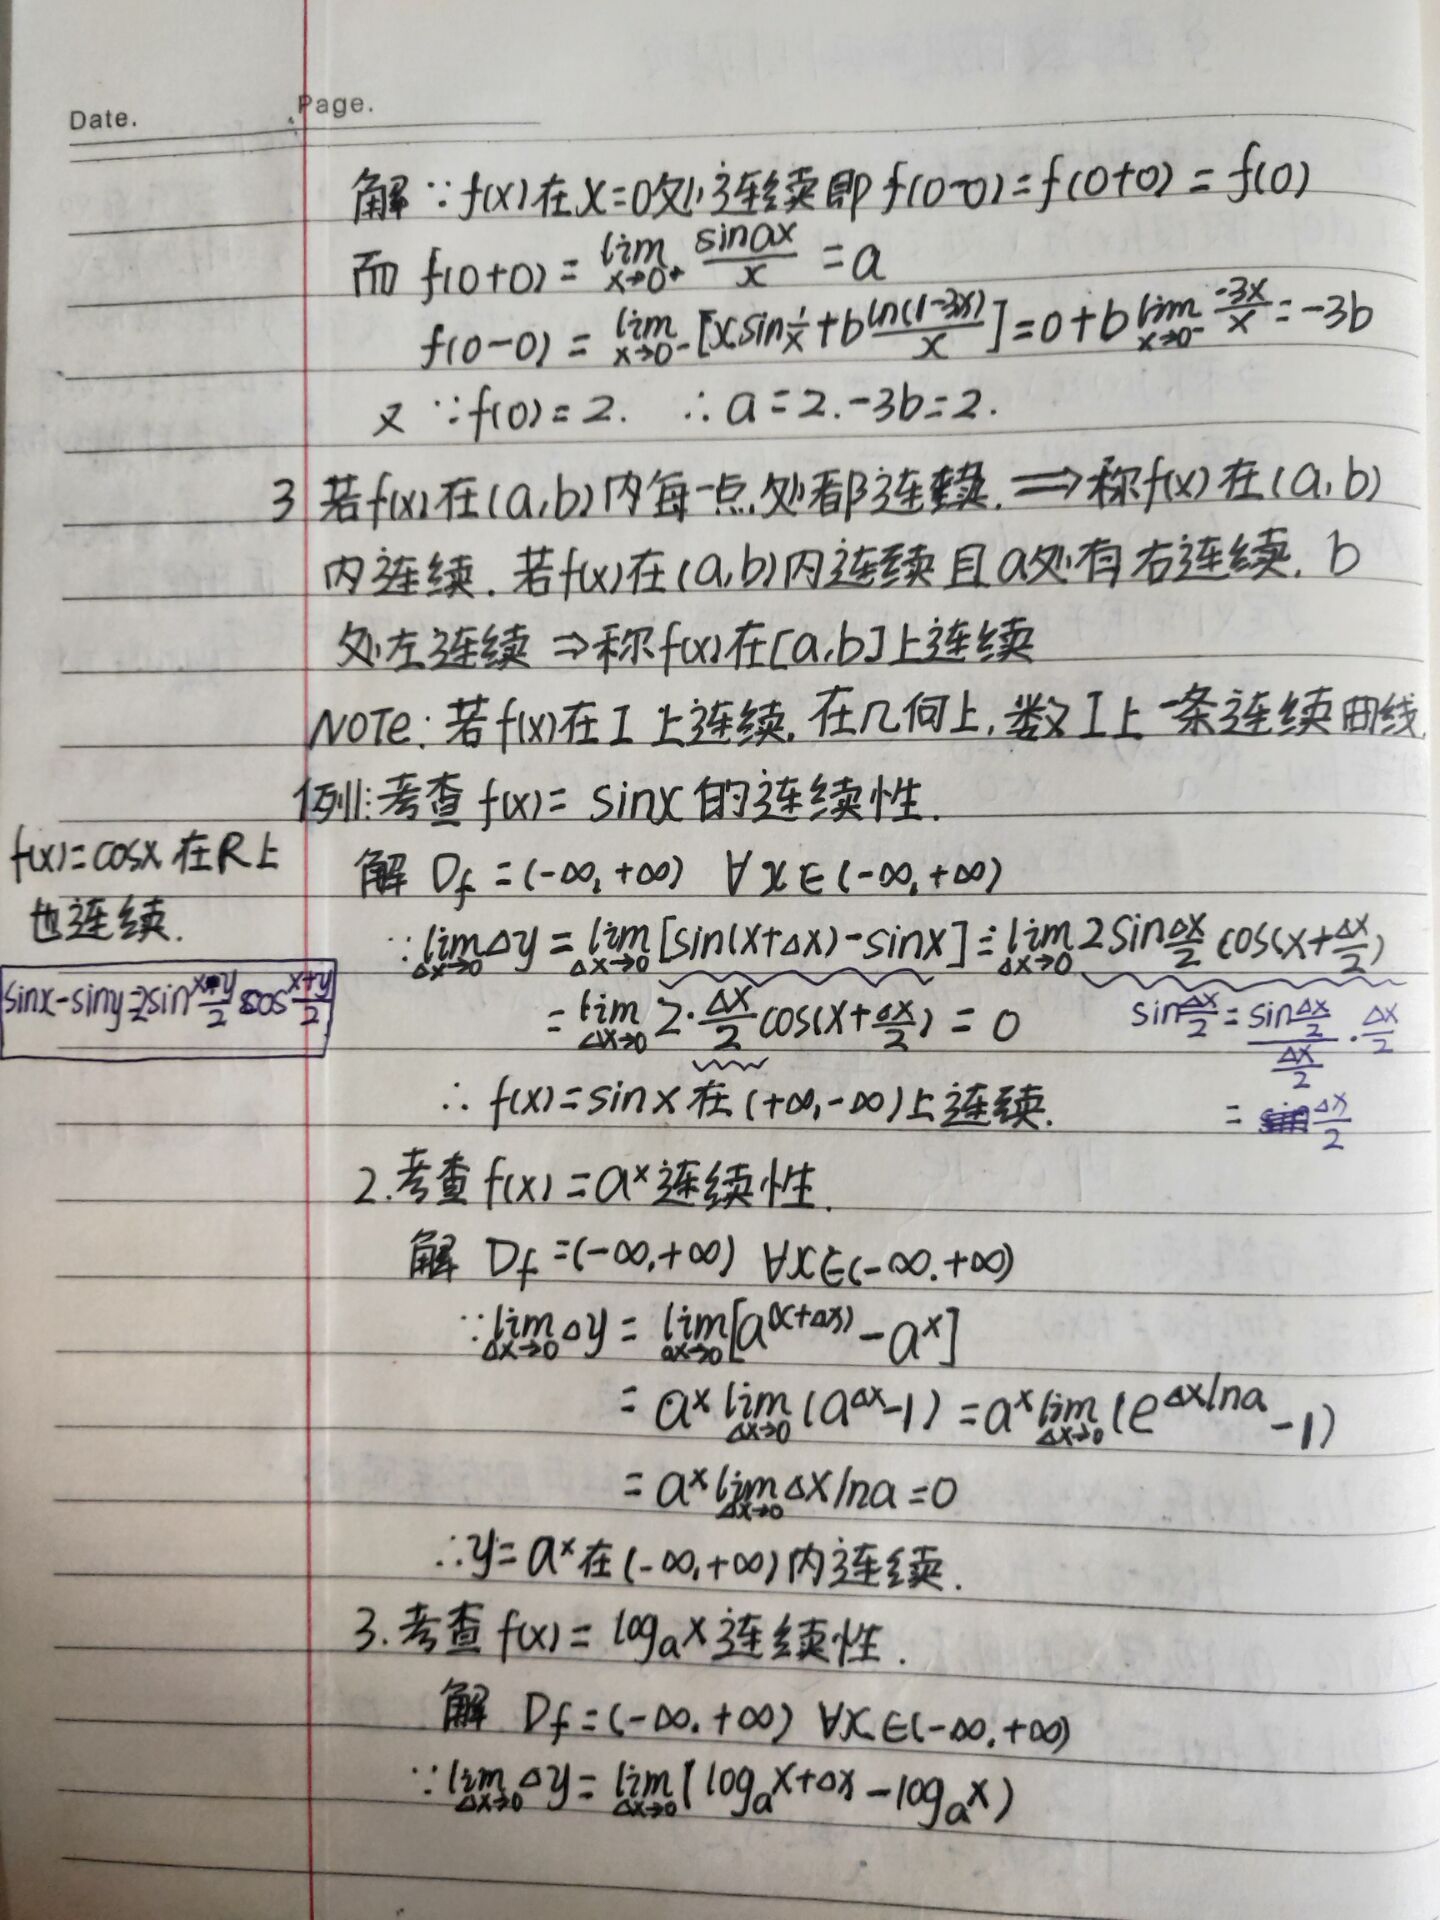 Date. Page.
解 ∵ f(x)在x=0处连续即 f(0-0)=f(0+0)=f(0)
而 f(0+0)= lim_{x→0+} sinax/x = a
f(0-0)= lim_{x→0-} [xsin 1/x + b ln(1-3x)/x] = 0+b lim_{x→0-} -3x/x = -3b
又 ∵ f(0)=2. ∴ a=2. -3b=2.
3 若f(x)在(a,b)内每一点处都连续. ⟹ 称f(x)在(a,b)
内连续. 若f(x)在(a,b)内连续且a处有右连续, b
处左连续 ⇒ 称f(x)在[a,b]上连续
NOTe: 若f(x)在I上连续, 在几何上, 数I上一条连续曲线.
例1: 考查 f(x)= sinx 的连续性.
f(x)=cosx 在R上
也连续.
解 Df =(-∞, +∞) ∀x∈(-∞, +∞)
∵ lim_{Δx→0} Δy = lim_{Δx→0} [sin(x+Δx)-sinx] = lim_{Δx→0} 2sin Δx/2 cos(x+Δx/2)
sinx-siny=2sin x-y/2 cos x+y/2
= lim_{Δx→0} 2·Δx/2 cos(x+Δx/2) = 0
sin Δx/2 = (sin Δx/2)/(Δx/2) · Δx/2
= Δx/2
∴ f(x)=sinx 在(+∞,-∞)上连续.
2. 考查 f(x)=a^x 连续性.
解 Df =(-∞,+∞) ∀x∈(-∞.+∞)
∵ lim_{Δx→0} Δy = lim_{Δx→0} [a^(x+Δx) - a^x]
= a^x lim_{Δx→0} (a^Δx -1) = a^x lim_{Δx→0} (e^Δxlna -1)
= a^x lim_{Δx→0} Δxlna =0
∴ y=a^x 在(-∞,+∞)内连续.
3. 考查 f(x)= log_a x 连续性.
解 Df =(-∞, +∞) ∀x∈(-∞, +∞)
∵ lim_{Δx→0} Δy = lim_{Δx→0} (log_a x+Δx - log_a x)